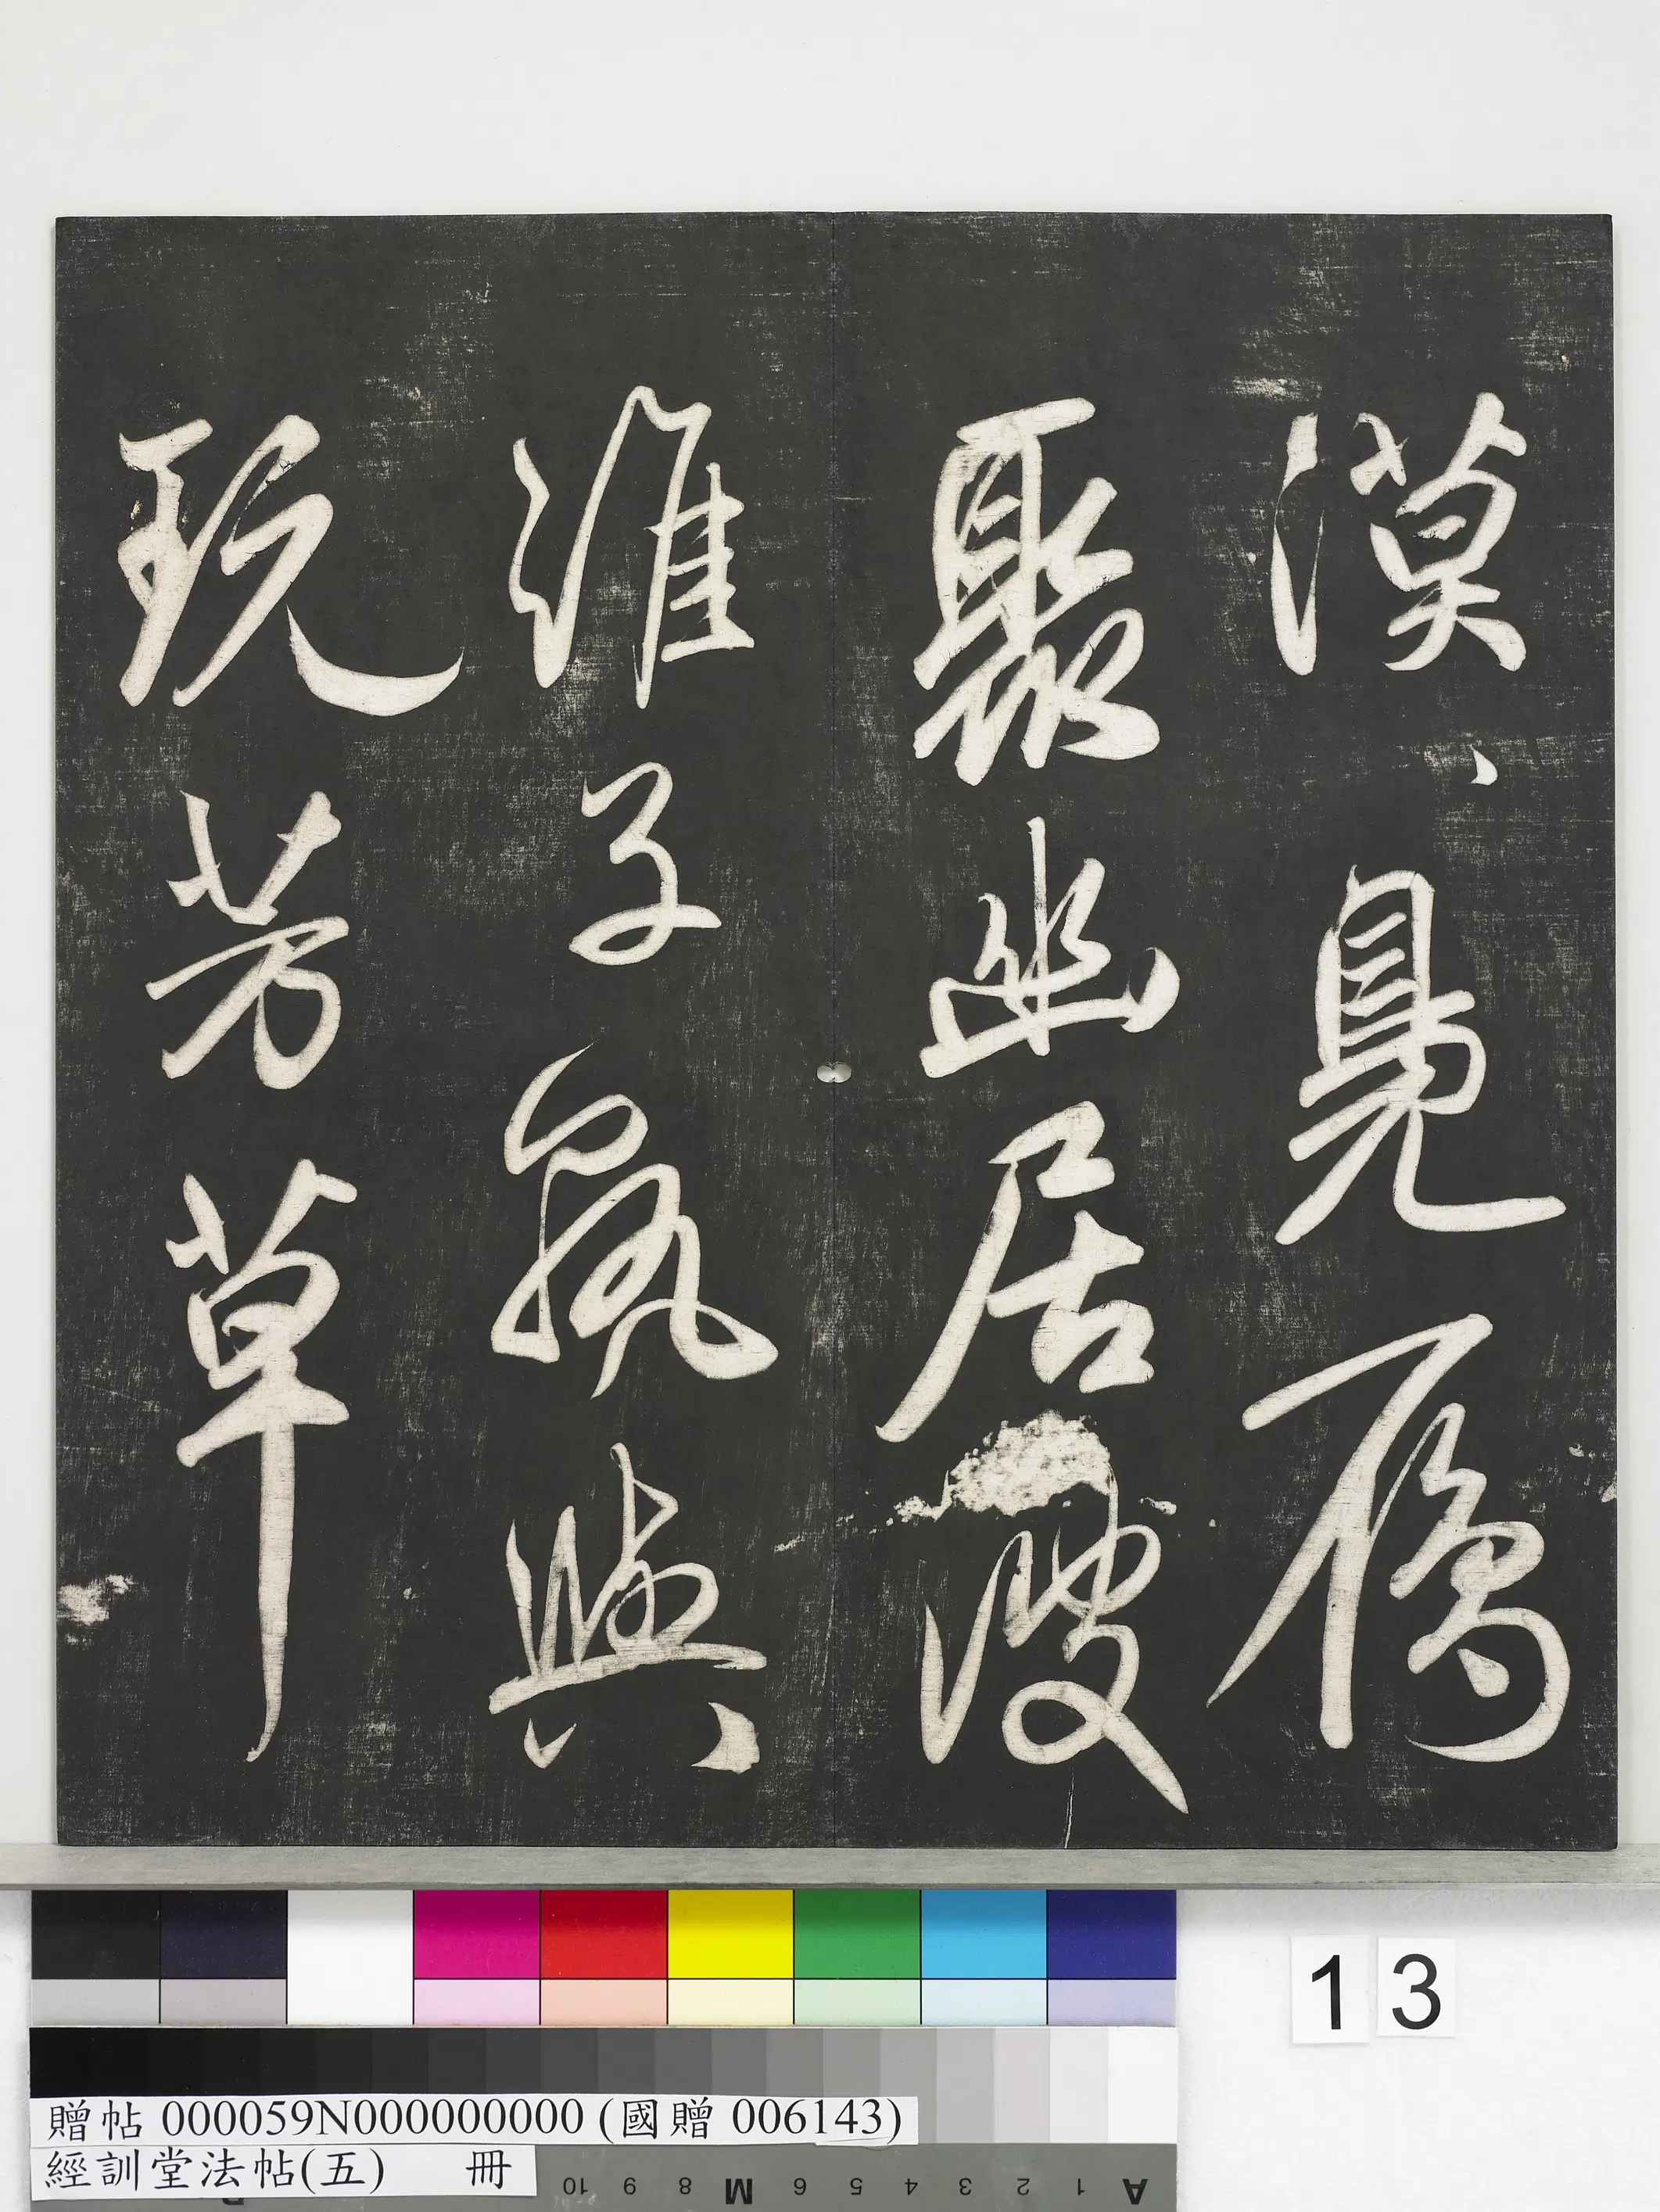 漠〻鳧鴈
聚幽居復
誰子孰與
玩芳草
13
贈帖 000059N000000000 (國贈 006143)
經訓堂法帖(五) 冊
10 9 8 M 6 5 4 3 2 1 A